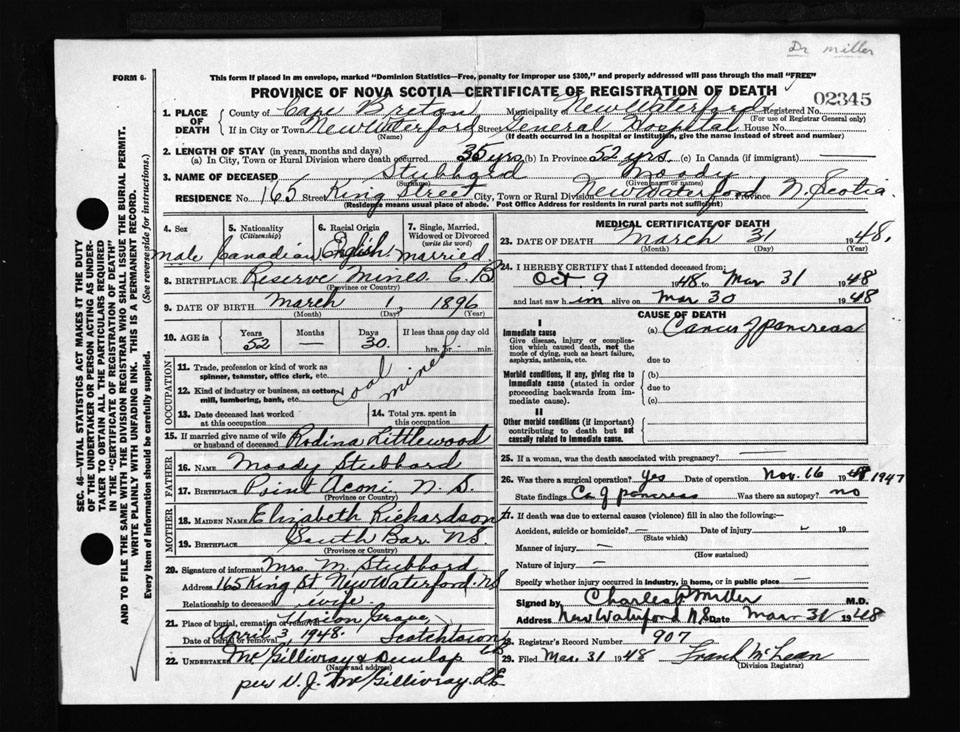 Dr Miller
FORM 6.
This form if placed in an envelope, marked "Dominion Statistics—Free, penalty for improper use $300," and properly addressed will pass through the mail "FREE"
PROVINCE OF NOVA SCOTIA—CERTIFICATE OF REGISTRATION OF DEATH
02345
1. PLACE OF DEATH
County of Cape Breton Municipality of New Waterford Registered No.
(For use of Registrar General only)
If in City or Town New Waterford Street General Hospital House No.
(Name) (If death occurred in a hospital or institution, give the name instead of street and number)
2. LENGTH OF STAY (in years, months and days)
(a) In City, Town or Rural Division where death occurred 35 yrs (b) In Province 52 yrs. (c) In Canada (if immigrant)
3. NAME OF DECEASED Stubbard Moody
(Surname) (Given name or names)
RESIDENCE No. 165 Street King Street City, Town or Rural Division New Waterford Province N. Scotia
(Residence means usual place of abode. Post Office Address for residents in rural parts not sufficient)
4. Sex 5. Nationality (Citizenship) 6. Racial Origin 7. Single, Married, Widowed or Divorced (write the word)
Male Canadian English Married
8. BIRTHPLACE Reserve Mines. C. B.
(Province or Country)
9. DATE OF BIRTH March 1, 1896
(Month) (Day) (Year)
10. AGE in Years Months Days If less than one day old
52 — 30. hrs. or min.
OCCUPATION
11. Trade, profession or kind of work as spinner, teamster, office clerk, etc.
12. Kind of industry or business, as cotton mill, lumbering, bank, etc.
Coal miner
13. Date deceased last worked at this occupation
14. Total yrs. spent in this occupation
15. If married give name of wife or husband of deceased Rodina Littlewood
FATHER
16. NAME Moody Stubbard
17. BIRTHPLACE Point Aconi N. S.
(Province or Country)
MOTHER
18. MAIDEN NAME Elizabeth Richardson
19. BIRTHPLACE South Bar. NS.
(Province or Country)
20. Signature of informant Mrs. M. Stubbard
Address 165 King St. New Waterford. NS
Relationship to deceased wife
21. Place of burial, cremation or removal Union Grave
Date of burial or removal April 3, 1948. Scotchtown CB
22. UNDERTAKER McGillivray & Dunlap
(Name and address)
per V. J. McGillivray.
MEDICAL CERTIFICATE OF DEATH
23. DATE OF DEATH March 31 1948.
(Month) (Day) (Year)
24. I HEREBY CERTIFY that I attended deceased from:
Oct 9 1948 to Mar 31 1948
and last saw h im alive on Mar 30 1948
CAUSE OF DEATH
I
Immediate cause
Give disease, injury or complication which caused death, not the mode of dying, such as heart failure, asphyxia, asthenia, etc.
(a) Cancer of pancreas
due to
Morbid conditions, if any, giving rise to immediate cause (stated in order proceeding backwards from immediate cause).
(b)
due to
(c)
II
Other morbid conditions (if important) contributing to death but not causally related to immediate cause.
25. If a woman, was the death associated with pregnancy? —
26. Was there a surgical operation? Yes Date of operation Nov. 16 1948 1947
State findings Ca of pancreas Was there an autopsy? no
27. If death was due to external causes (violence) fill in also the following:—
Accident, suicide or homicide? — Date of injury 19
(State which)
Manner of injury —
(How sustained)
Nature of injury —
Specify whether injury occurred in industry, in home, or in public place —
Signed by Charles Miller M.D.
Address New Waterford N.S. Date Mar 31 1948
28. Registrar's Record Number 907
29. Filed Mar. 31 1948 Frank McLean
(Division Registrar)
SEC. 46—VITAL STATISTICS ACT MAKES IT THE DUTY
OF THE UNDERTAKER OR PERSON ACTING AS UNDER-
TAKER TO OBTAIN ALL THE PARTICULARS REQUIRED
IN THE "CERTIFICATE OF REGISTRATION OF DEATH"
AND TO FILE THE SAME WITH THE DIVISION REGISTRAR WHO SHALL ISSUE THE BURIAL PERMIT.
WRITE PLAINLY WITH UNFADING INK. THIS IS A PERMANENT RECORD.
Every item of information should be carefully supplied. (See reverse side for instructions.)